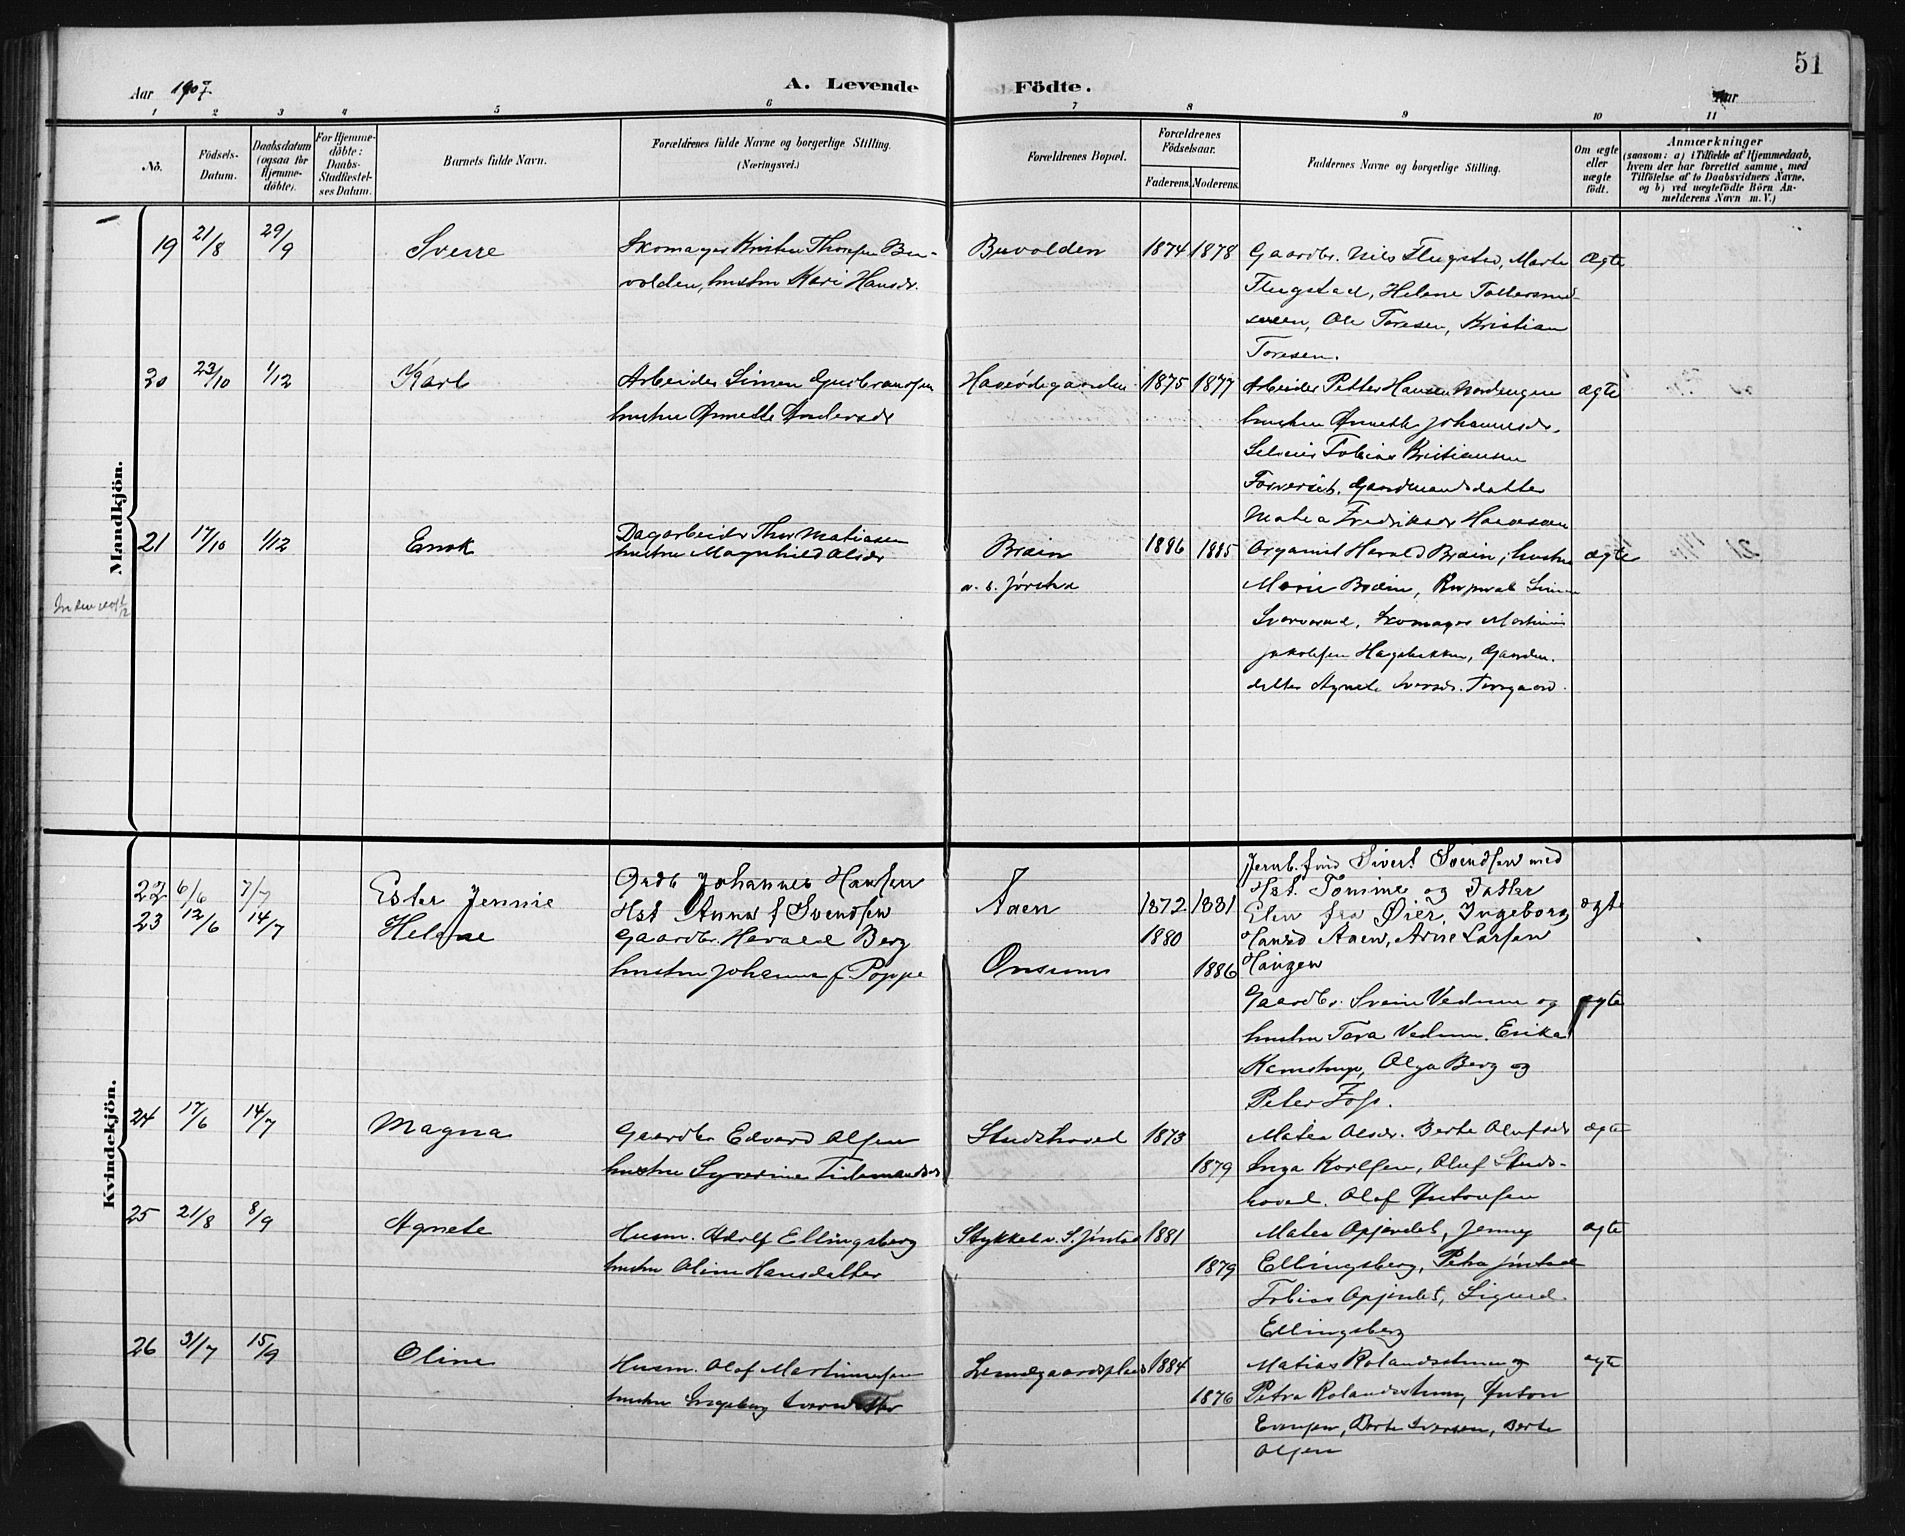 51
Aar 1907.
A. Levende Födte.
Aar
1 2 3 4 5 6 7 8 9 10 11
No.
Födsels-Datum.
Daabsdatum (ogsaa for Hjemmedöbte).
For Hjemmedöbte: Daabs-Stadfæstelses Datum.
Barnets fulde Navn.
Forældrenes fulde Navne og borgerlige Stilling.
(Næringsvei.)
Forældrenes Bopæl.
Forældrenes Födselsaar.
Faderens. Moderens.
Faddernes Navne og borgerlige Stilling.
Om ægte eller uægte födt.
Anmærkninger
(saasom: a) i Tilfælde af Hjemmedaab,
hvem der har forrettet samme, med
Tilföielse af to Daabsvidners Navne,
og b) ved uægtefödte Börn An-
melderens Navn m. V.)
Mandkjön.
19 21/8 29/9 Sverre Skomager Kristen Thoresen Bu- Buvolden 1874 1878 Gaardbr. Nils Flugstad, Marte Ægte
volden, hustru Kari Hansdr. Flugstad, Helene
Ole Toresen, Kristian
Toresen.
20 23/10 1/12 Karl Arbeider Simen Gudbrandsen 1875 1877 Arbeider Petter Hansen Nordengen ægte
hustru Annette Andersdr hustru Annette Johannesdr.
Selveier Tobias Kristiansen
Gaardmandsdatter
Matea Fredriksdr
21 17/10 1/12 Enok Dagarbeider Thor Matiasen Bræin 1886 1885 Organist Harald Bræin, hustru ægte
hustru Magnhild Olsdr
u. s. Jørstad Marie Bræin, Simen
Skomager Martin
Jakobsen Hagebakken, Gaardm.
datter Agnete Iversdr.
Kvindekjön.
Jernb.form Sivert Svendsen med
22 6/6 7/7 Ester Jennie Grdb Johannes Hansen Aaen 1872 1881 Hst. Tomine og Datter ægte
Hst Anna f Svendsen Elen fra Øier, Ingeborg
23 12/6 14/7 Helene Gaardbr. Harald Berg Onsum 1880 Hansd Aaen, Arne Larsen
hustru Johanna f Poppe 1886 Haugen
Gaardbr. Svein Vedum og ægte
hustru Tora Vedum. Erika
Kamstrup, Olga Berg og
Peter Foss.
24 17/6 14/7 Magna Gaardbr Edvard Olsen Studshoved 1873 Matea Olsdr. Berte Olufsdr ægte
hustru Syverine Tidemandsdr 1879 Inga Karlsen, Oluf Studs-
hoved. Olaf Antonsen
25 21/8 8/9 Agnete Husm. Adolf Ellingsberg Stykket u. S. Jørstad 1881 Matea Opjordet, Jenny ægte
hustru Oline Hansdatter 1879 Ellingsberg, Petra Jørstad
Tobias Opjordet, Sigurd
Ellingsberg
26 31/7 15/9 Oline Husm. Olaf Martinusen 1884 Matias Rolandsstuen og ægte
hustru Ingeborg Iversdatter 1876 Petra Rolandsstuen, Anton
Evensen, Berte Iversen, Berte
Olsen